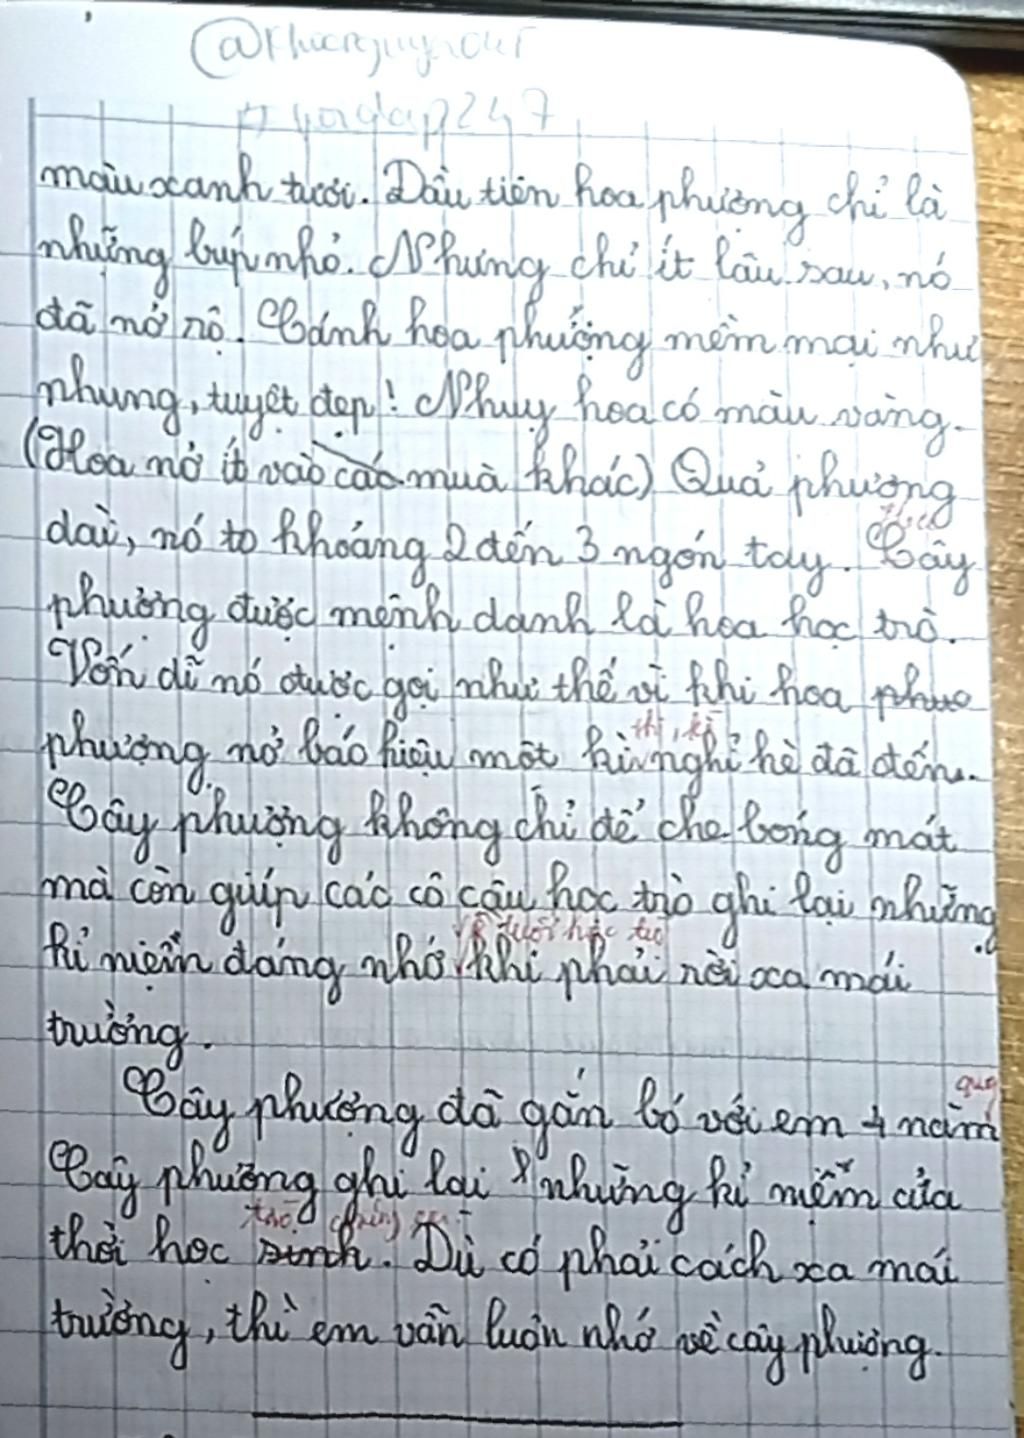 #hoidap247
màu xanh tươi. Đầu tiên hoa phượng chỉ là
những búp nhỏ. Nhưng chỉ ít lâu sau, nó
đã nở rộ. Cánh hoa phượng mềm mại như
nhung, tuyệt đẹp! Nhuỵ hoa có màu vàng.
(Hoa nở ít vào các muà khác) Quả phượng
dài, nó to khoảng 2 đến 3 ngón tay. Cây
phượng được mệnh danh là hoa học trò.
Vốn dĩ nó được gọi như thế vì khi hoa phuo
phượng nở báo hiệu một kì nghỉ hè đã đến.
Cây phượng không chỉ để che bóng mát
mà còn giúp các cô cậu học trò ghi lại những
về tuổi học trò
kỉ niệm đáng nhớ khi phải rời xa mái
trường.
Cây phượng đã gắn bó với em 4 năm
qua
Cây phượng ghi lại những kỉ niệm của
trò chúng em
thời học sinh. Dù có phải cách xa mái
trường, thì em vẫn luôn nhớ về cây phượng.